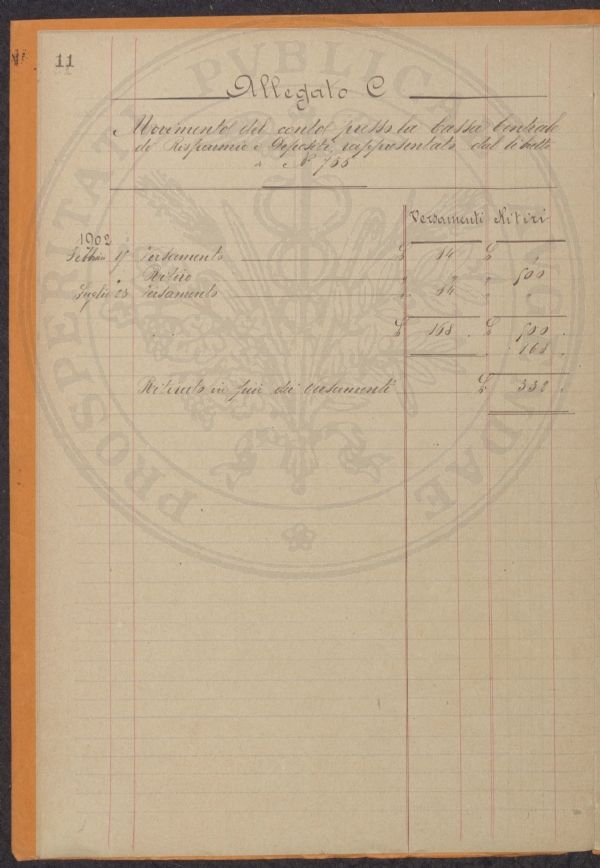 11
Allegato C
Movimento del conto presso la Cassa Centrale
di Risparmio e Depositi rappresentato dal libretto
N° 755
Versamenti Ritiri
1902
Febbraio Versamento £ 84 £ "
Ritiro " " " 500
Luglio 23 Versamento " 84 " "
£ 168 . £ 500 .
" 168 .
Ritirato in più dei versamenti £ 332 .
PROSPERITATI PVBLICAE AVGENDAE